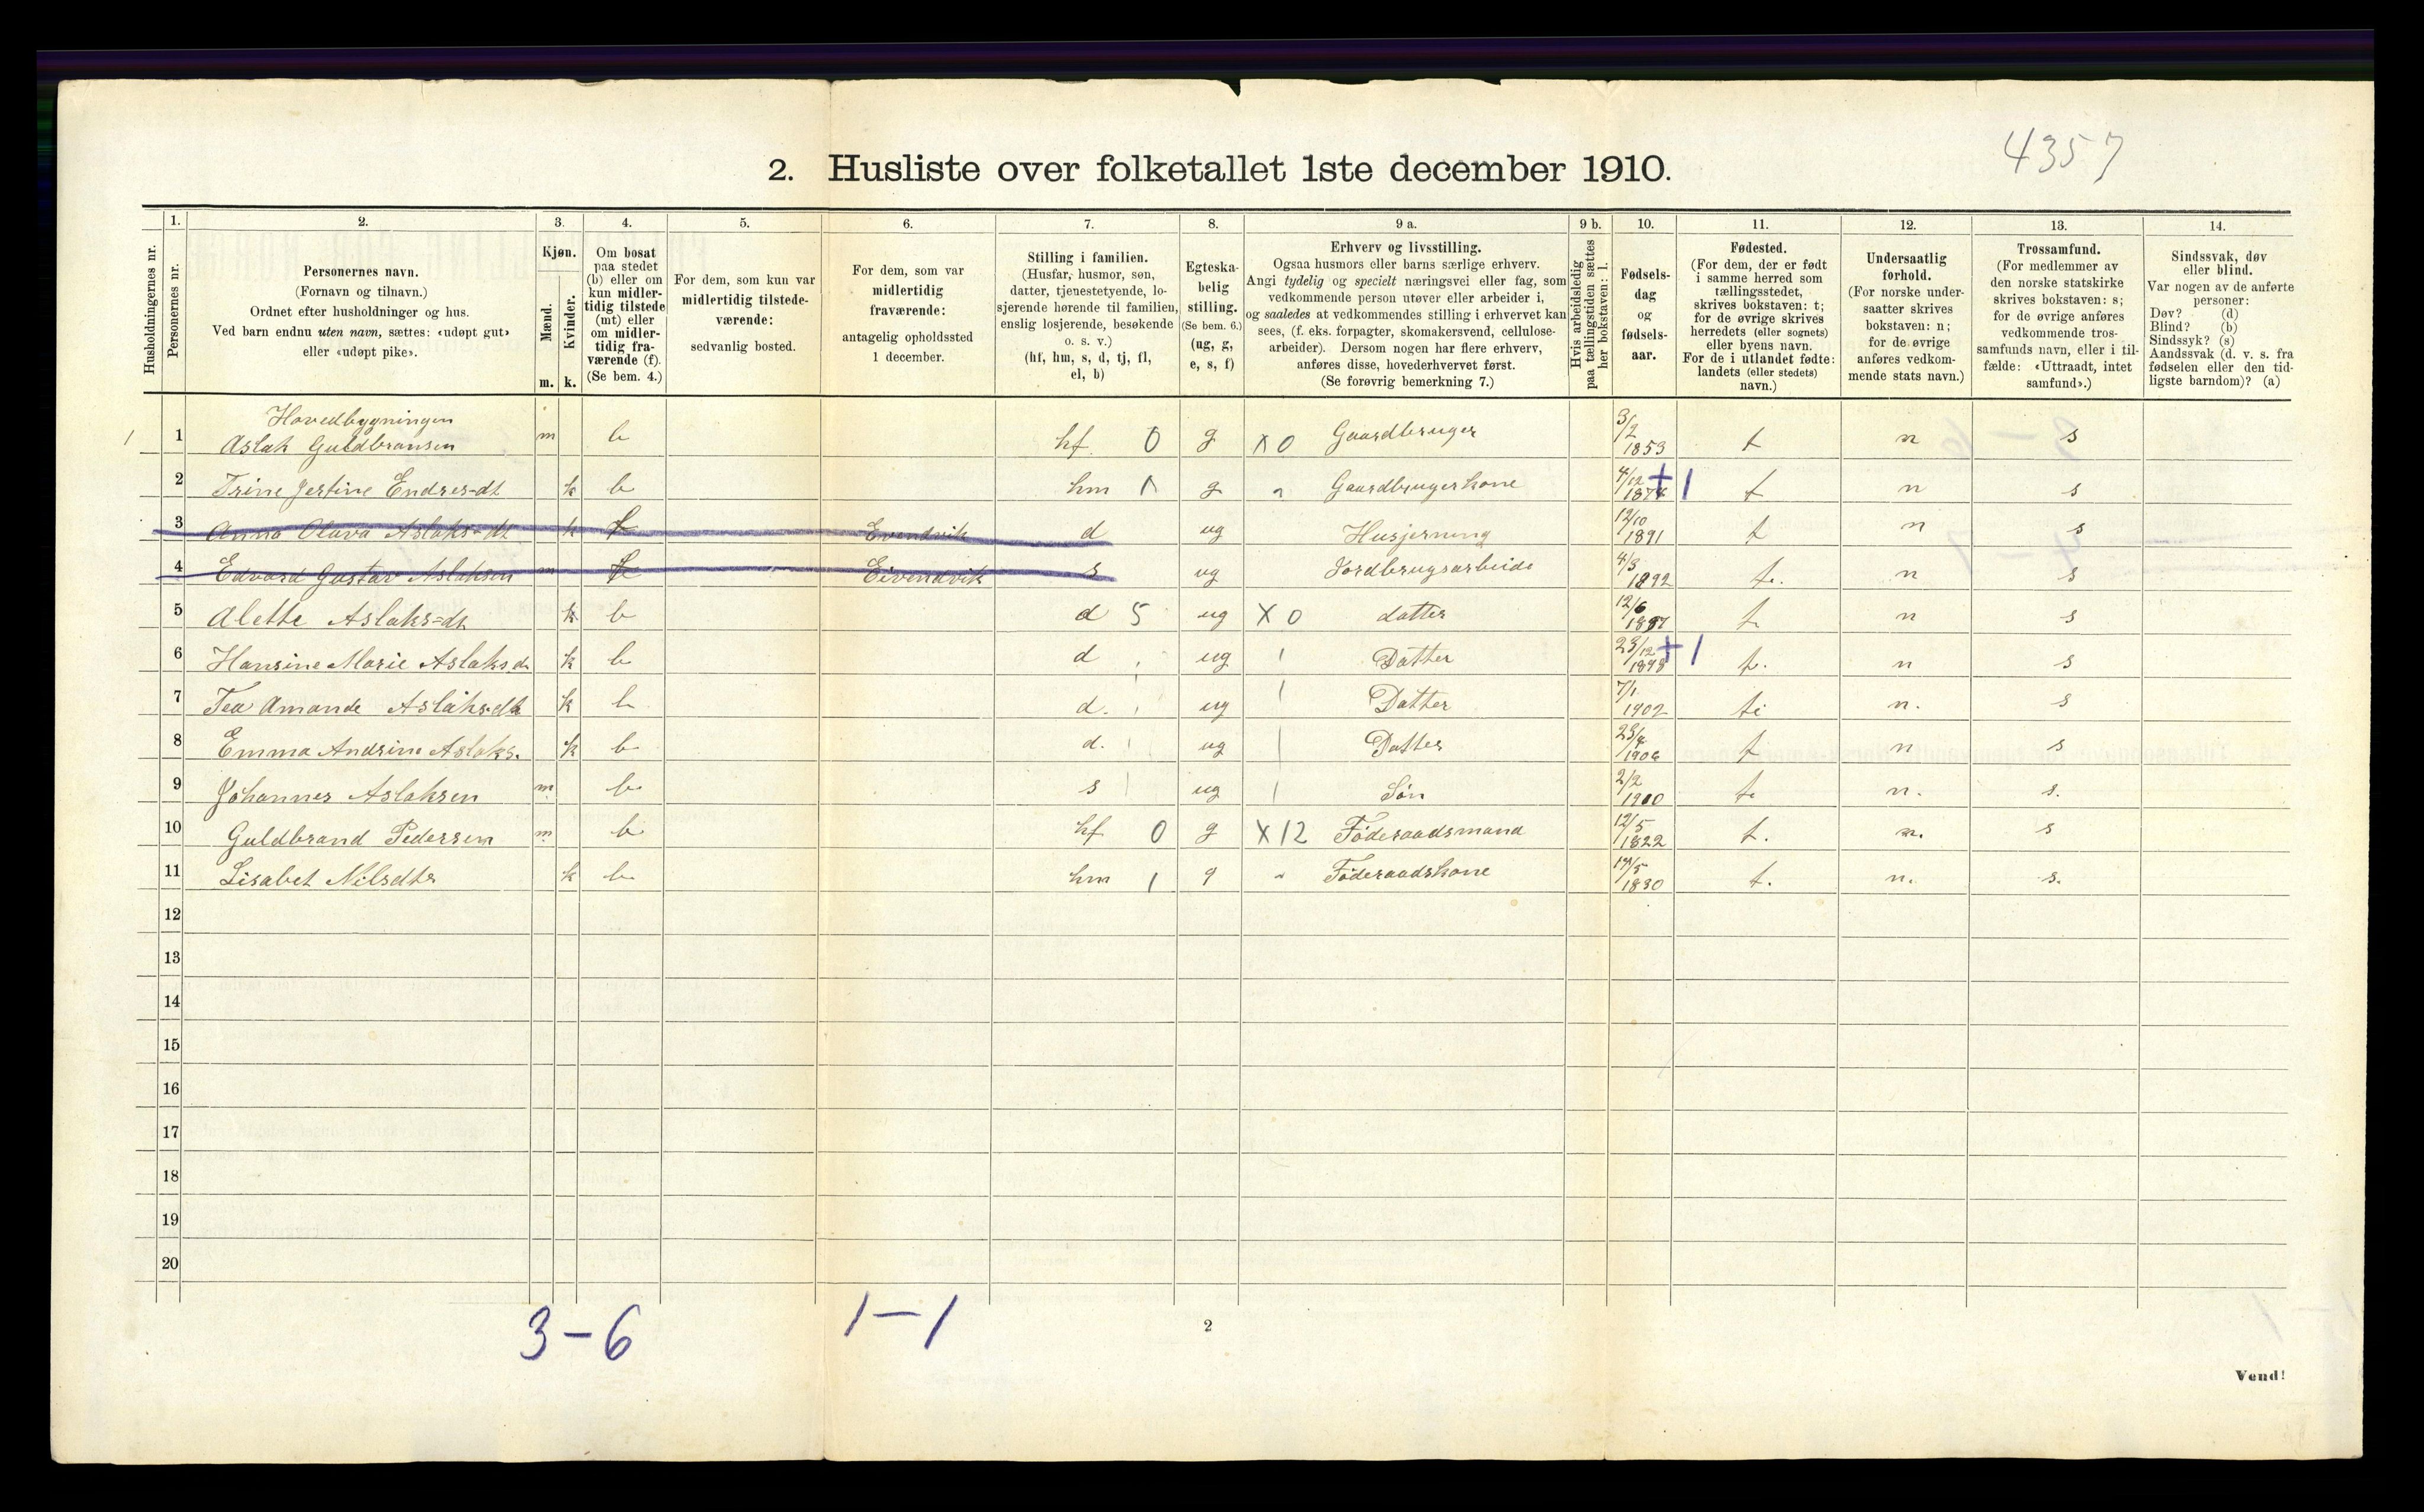 4357
2. Husliste over folketallet 1ste december 1910.
Husholdningernes nr.
1. Personernes nr.
2. Personernes navn.
(Fornavn og tilnavn.)
Ordnet efter husholdninger og hus.
Ved barn endnu uten navn, sættes: «udøpt gut»
eller «udøpt pike».
3. Kjøn.
Mænd. m.
Kvinder. k.
4. Om bosat
paa stedet
(b) eller om
kun midler-
tidig tilstede
(mt) eller
om midler-
tidig fra-
værende (f).
(Se bem. 4.)
5. For dem, som kun var
midlertidig tilstede-
værende:
sedvanlig bosted.
6. For dem, som var
midlertidig
fraværende:
antagelig opholdssted
1 december.
7. Stilling i familien.
(Husfar, husmor, søn,
datter, tjenestetyende, lo-
sjerende hørende til familien,
enslig losjerende, besøkende
o. s. v.)
(hf, hm, s, d, tj, fl,
el, b)
8. Egteska-
belig
stilling.
(Se bem. 6.)
(ug, g,
e, s, f)
9 a. Erhverv og livsstilling.
Ogsaa husmors eller barns særlige erhverv.
Angi tydelig og specielt næringsvei eller fag, som
vedkommende person utøver eller arbeider i,
og saaledes at vedkommendes stilling i erhvervet kan
sees, (f. eks. forpagter, skomakersvend, cellulose-
arbeider). Dersom nogen har flere erhverv,
anføres disse, hovederhvervet først.
(Se forøvrig bemerkning 7.)
9 b. Hvis arbeidsledig
paa tællingstiden sættes
her bokstaven: l.
10. Fødsels-
dag
og
fødsels-
aar.
11. Fødested.
(For dem, der er født
i samme herred som
tællingsstedet,
skrives bokstaven: t;
for de øvrige skrives
herredets (eller sognets)
eller byens navn.
For de i utlandet fødte:
landets (eller stedets)
navn.)
12. Undersaatlig
forhold.
(For norske under-
saatter skrives
bokstaven: n;
for de øvrige
anføres vedkom-
mende stats navn.)
13. Trossamfund.
(For medlemmer av
den norske statskirke
skrives bokstaven: s;
for de øvrige anføres
vedkommende tros-
samfunds navn, eller i til-
fælde: «Uttraadt, intet
samfund».)
14. Sindssvak, døv
eller blind.
Var nogen av de anførte
personer:
Døv? (d)
Blind? (b)
Sindssyk? (s)
Aandssvak (d. v. s. fra
fødselen eller den tid-
ligste barndom)? (a)
Hovedbygningen
1 1 Aslak Guldbransen m b hf 0 g X 0 Gaardbruger 3/2 1853 t n s
2 Trine Jertine Endres-dt k b hm 1 g " Gaardbrugerkone 4/12 1874 +1 t n s
3 Anna Olava Aslaks-dt k f Evendvik d ug Husjerning 12/10 1891 t n s
4 Edvard Gustav Aslaksen m f Eivendvik s ug Jordbrugsarbeide 4/3 1892 t. n s
5 Alette Aslaks=dt k b d 5 ug X 0 datter 12/6 1897 t n s
6 Hansine Marie Aslaksd k b d ug Datter 23/12 1898 +1 t. n s
7 Tea Amande Aslaksdt k b d. ug Datter 7/1 1902 t n. s
8 Emma Andrine Aslaks. k b d. ug Datter 1906 t n s
9 Johannes Aslaksen m b s ug Søn 2/2 1910 t n. s.
10 Guldbrand Pedersen m b hf 0 g X 12 Føderaadsmand 12/5 1822 t. n. s
11 Lisabet Nilsdtr k b hm 1 g " Føderaadskone 1830 t. n. s.
12
13
14
15
16
17
18
19
20
3-6 1-1
2
Vend!